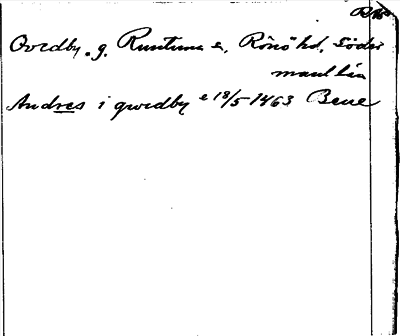 Ovedby. g. Runtuna s, Rönö hd, Söder
manl. län
Andres i qwedby e 18/5 1463 Bene